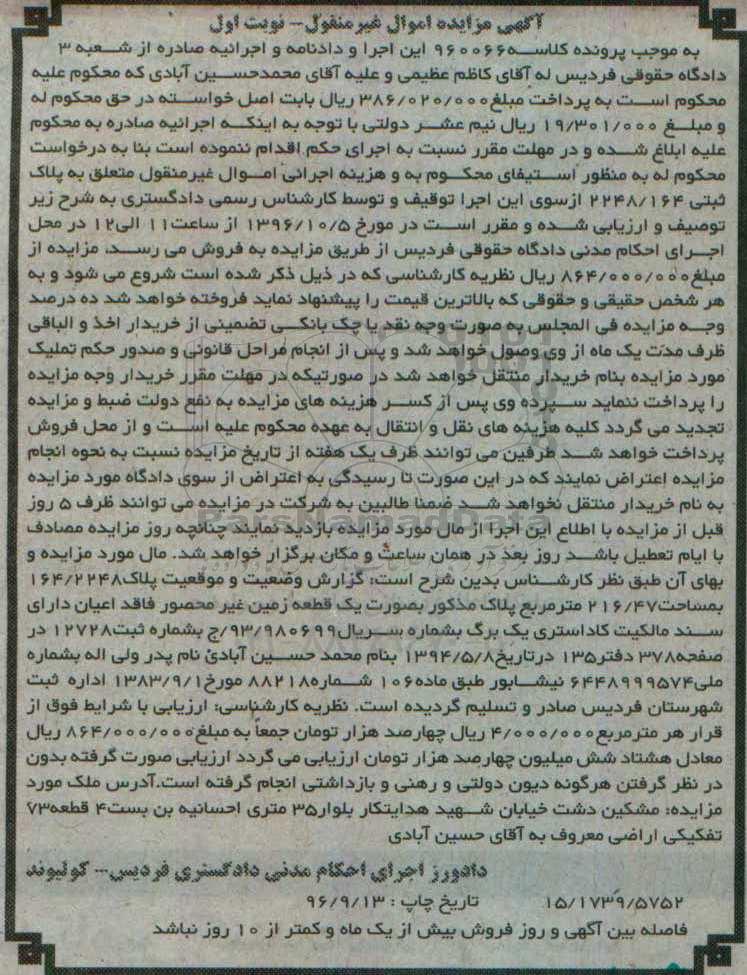 آگهی مزایده اموال غیرمنقول- نوبت اول
به موجب پرونده کلاسه۹۶۰۰۶۶ این اجرا و دادنامه و اجرائیه صادره از شعبه ۳
دادگاه حقوقی فردیس له آقای کاظم عظیمی و علیه آقای محمدحسین آبادی که محکوم علیه
محکوم است به پرداخت مبلغ۳۸۶/۰۲۰/۰۰۰ ریال بابت اصل خواسته در حق محکوم له
و مبلغ ۱۹/۳۰۱/۰۰۰ ریال نیم عشر دولتی با توجه به اینکه اجرائیه صادره به محکوم
علیه ابلاغ شده و در مهلت مقرر نسبت به اجرای حکم اقدام ننموده است بنا به درخواست
محکوم له به منظور استیفای محکوم به و هزینه اجرائی اموال غیرمنقول متعلق به پلاک
ثبتی ۲۲۴۸/۱۶۴ ازسوی این اجرا توقیف و توسط کارشناس رسمی دادگستری به شرح زیر
توصیف و ارزیابی شده و مقرر است در مورخ ۱۳۹۶/۱۰/۵ از ساعت۱۱ الی۱۲ در محل
اجرای احکام مدنی دادگاه حقوقی فردیس از طریق مزایده به فروش می رسد، مزایده از
مبلغ۸۶۴/۰۰۰/۰۰۰ ریال نظریه کارشناسی که در ذیل ذکر شده است شروع می شود و به
هر شخص حقیقی و حقوقی که بالاترین قیمت را پیشنهاد نماید فروخته خواهد شد ده درصد
وجه مزایده فی المجلس به صورت وجه نقد یا چک بانکی تضمینی از خریدار اخذ و الباقی
ظرف مدت یک ماه از وی وصول خواهد شد و پس از انجام مراحل قانونی و صدور حکم تملیک
مورد مزایده بنام خریدار منتقل خواهد شد در صورتیکه در مهلت مقرر خریدار وجه مزایده
را پرداخت ننماید سپرده وی پس از کسر هزینه های مزایده به نفع دولت ضبط و مزایده
تجدید می گردد کلیه هزینه های نقل و انتقال به عهده محکوم علیه است و از محل فروش
پرداخت خواهد شد طرفین می توانند ظرف یک هفته از تاریخ مزایده نسبت به نحوه انجام
مزایده اعتراض نمایند که در این صورت تا رسیدگی به اعتراض از سوی دادگاه مورد مزایده
به نام خریدار منتقل نخواهد شد ضمنا طالبین به شرکت در مزایده می توانند ظرف ۵ روز
قبل از مزایده با اطلاع این اجرا از مال مورد مزایده بازدید نمایند چنانچه روز مزایده مصادف
با ایام تعطیل باشد روز بعد در همان ساعت و مکان برگزار خواهد شد. مال مورد مزایده و
بهای آن طبق نظر کارشناس بدین شرح است: گزارش وضعیت و موقعیت پلاک۱۶۴/۲۲۴۸
بمساحت۲۱۶/۴۷ مترمربع پلاک مذکور بصورت یک قطعه زمین غیر محصور فاقد اعیان دارای
سند مالکیت کاداستری یک برگ بشماره سریال۹۳/۹۸۰۶۹۹/ج بشماره ثبت۱۲۷۲۸ در
صفحه۳۷۸ دفتر۱۳۵ درتاریخ۱۳۹۴/۵/۸ بنام محمد حسین آبادی نام پدر ولی اله بشماره
ملی۶۴۴۸۹۹۹۵۷۴ نیشابور طبق ماده۱۰۶ شماره۸۸۲۱۸ مورخ۱۳۸۳/۹/۱ اداره ثبت
شهرستان فردیس صادر و تسلیم گردیده است. نظریه کارشناسی: ارزیابی با شرایط فوق از
قرار هر مترمربع۴/۰۰۰/۰۰۰ ریال چهارصد هزار تومان جمعاً به مبلغ۸۶۴/۰۰۰/۰۰۰ ریال
معادل هشتاد شش میلیون چهارصد هزار تومان ارزیابی می گردد ارزیابی صورت گرفته بدون
در نظر گرفتن هرگونه دیون دولتی و رهنی و بازداشتی انجام گرفته است.آدرس ملک مورد
مزایده: مشکین دشت خیابان شهید هدایتکار بلوار۳۵ متری احسانیه بن بست۴ قطعه۷۳
تفکیکی اراضی معروف به آقای حسین آبادی
دادورز اجرای احکام مدنی دادگستری فردیس- کولیوند
۱۵/۱۷۳۹/۵۷۵۲ تاریخ چاپ : ۹۶/۹/۱۳
فاصله بین آگهی و روز فروش بیش از یک ماه و کمتر از ۱۰ روز نباشد
ParsNamadData